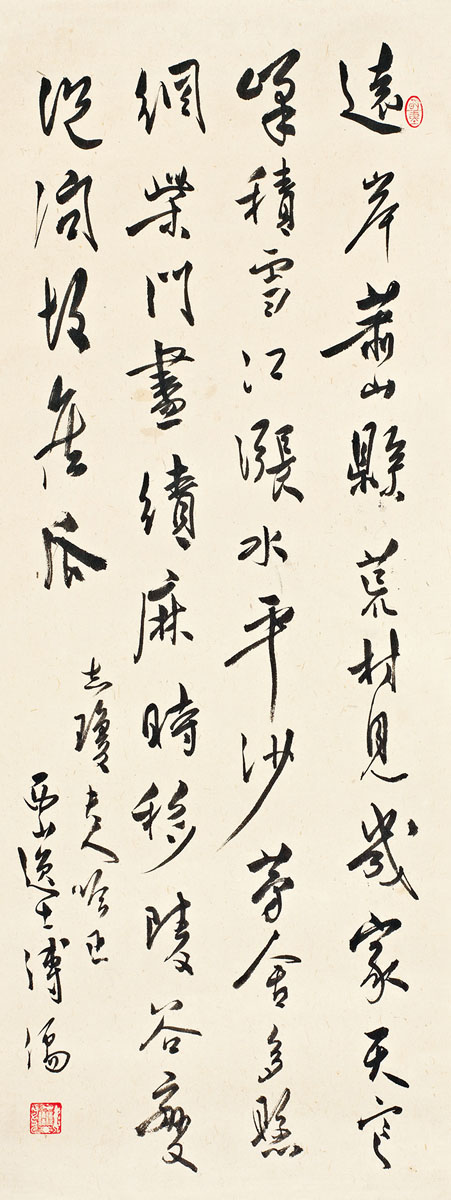 遠岸蕭山縣荒村見幾家天寒
峰積雪江漲水平沙茅舍多懸
網柴門盡績麻時移陵谷變
問故侯瓜
志瓊夫人吟正
西山逸士溥儒